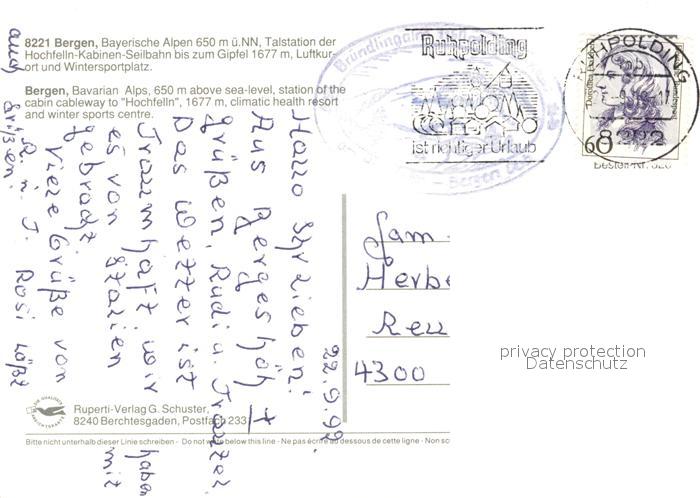 8221 Bergen, Bayerische Alpen 650 m ü.NN, Talstation der
Hochfelln-Kabinen-Seilbahn bis zum Gipfel 1677 m, Luftkur-
ort und Wintersportplatz.
Bergen, Bavarian Alps, 650 m above sea-level, station of the
cabin cableway to "Hochfelln", 1677 m, climatic health resort
and winter sports centre.
Ruhpolding
ist richtiger Urlaub
RUHPOLDING
8222
60
22.9.92
Hallo Ihr Lieben!
Aus Berges höh
grüßen, Rudi u. Traudel.
Das Wetter ist
Traumhaft, wir haben
es von Italien mit
gebracht.
Viele Grüße von
R. u. T. Rosi läßt
auch grüßen.
Fam.
Herbe
Reu
4300
privacy protection
Datenschutz
Ruperti-Verlag G. Schuster,
8240 Berchtesgaden, Postfach 233
Bitte nicht unterhalb dieser Linie schreiben - Do not write below this line - Ne pas écrire au dessous de cette ligne - Non sc